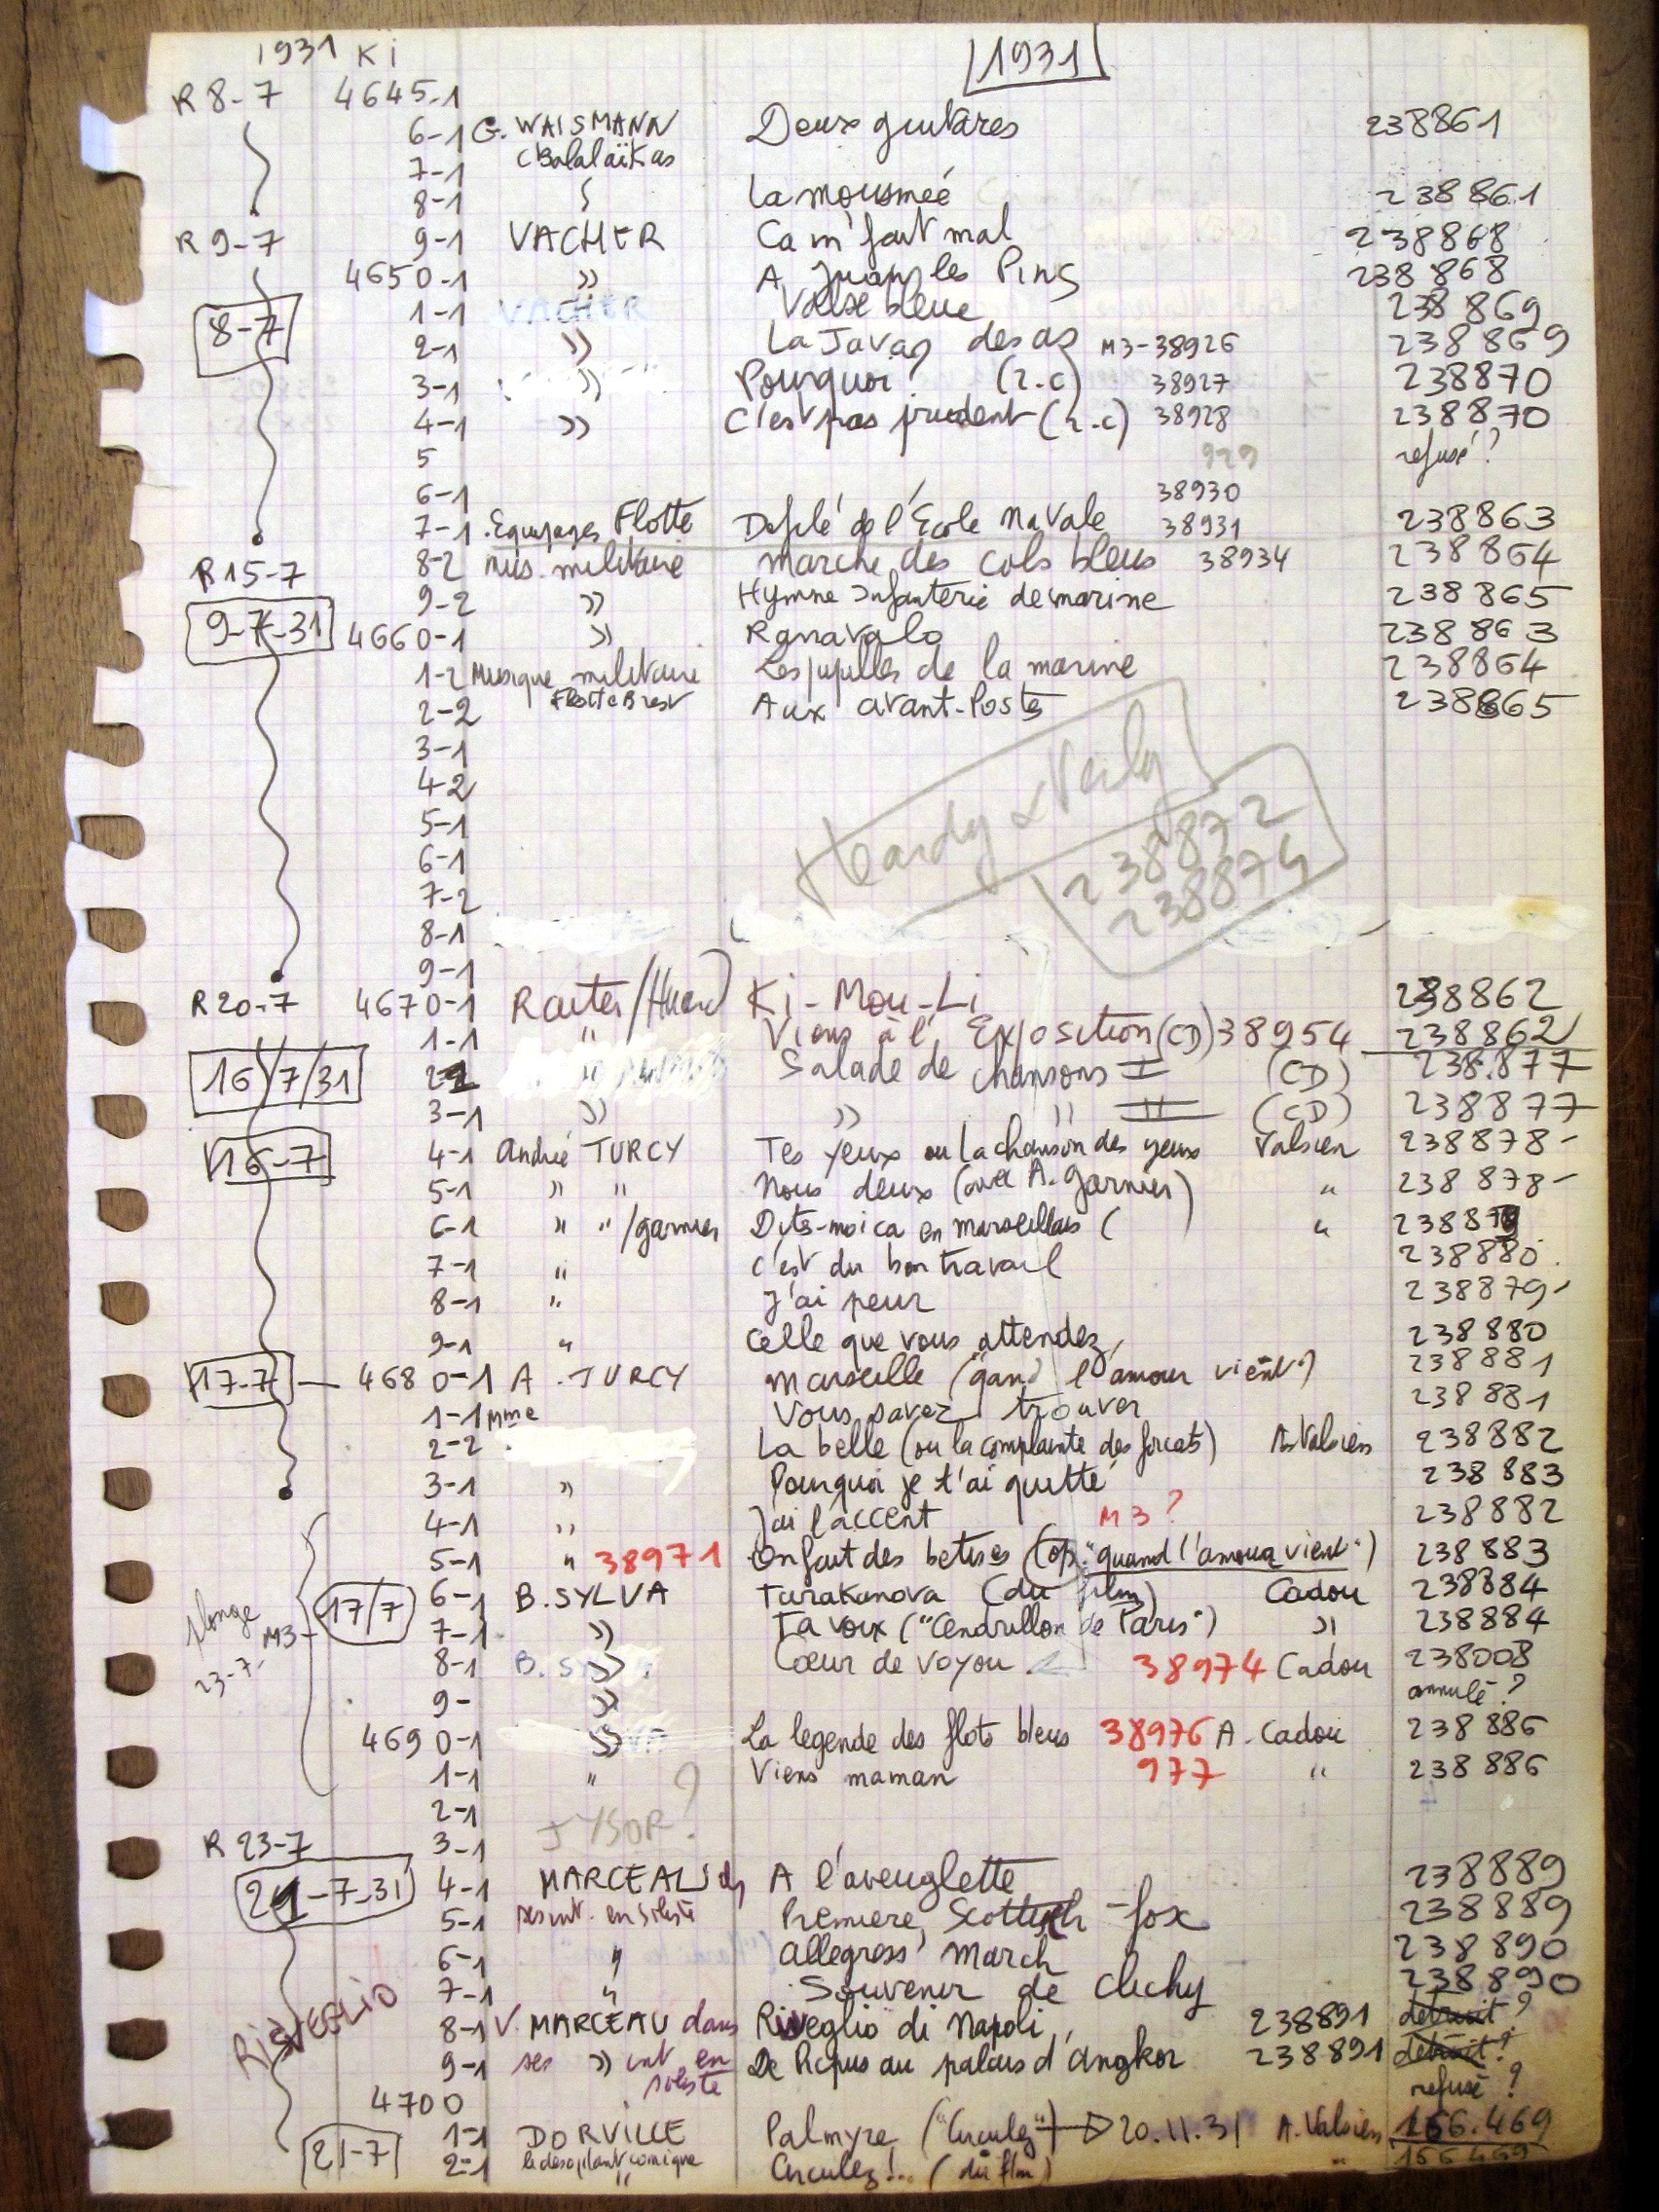 1931 Ki
1931
R 8-7 4645-1
6-1 G. WAISMANN Deux guitares 238861
(Balalaïkas
7-1
8-1 La mousmeé 238861
R 9-7 9-1 VACHER Ca m'fait mal 238868
4650-1 » A Juan les Pins 238868
1-1 VACHER Valse bleue 238869
8-7
2-1 » La Java des as M3-38926 238869
3-1 » Pourquoi? (r.c) 38927 238870
4-1 » C'est pas prudent (r.c) 38928 238870
5 929 refusé?
6-1 38930
7-1 Equipages Flotte Defilé de l'École Navale 38931 238863
R 15-7 8-2 mus. militaire marche des cols bleus 38934 238864
9-2 » Hymne Infanterie de marine 238865
9-7-31 4660-1 » Ranavalo 238863
1-2 Musique militaire Les pupilles de la marine 238864
Flotte Brest
2-2 Aux avant-Postes 238865
3-1
4-2
5-1
6-1
7-2
8-1
9-1
238872
238874
R 20-7 4670-1 Rauter/Huard Ki-Mou-Li 238862
1-1 " Viens à l'Exposition (CD) 38954 238862
16/7/31 Salade de chansons I (CD) 238.877
3-1 » » " II (CD) 238877
16-7 4-1 André TURCY Tes yeux ou La chanson des yeux Valsien 238878-
5-1 » " Nous deux (avec A. Garnier) " 238878-
6-1 » " /garnier Dites-moi ca en marseillais ( ) " 238879
7-1 " c'est du bon travail 238880
8-1 " J'ai peur 238879-
9-1 " Celle que vous attendez 238880
17-7 4680-1 A. TURCY Marseille (quand l'amour vient) 238881
1-1 Mme Vous savez trouver 238881
2-2 La belle (ou la complainte des forcats) A. Valsien 238882
3-1 » Pourquoi je t'ai quitté 238883
4-1 » J'ai l'accent M3? 238882
5-1 " 38971 On fait des betises (op. "quand l'amour vient") 238883
17/7 6-1 B. SYLVA Tarakanova (du film) Cadou 238884
7-1 » Ta voix ("Cendrillon de Paris") » 238884
23-7- M3
8-1 B. SYLVA Cœur de voyou 38974 Cadou 238008
9- » annulé?
4690-1 » La legende des flots bleus 38976 A. Cadou 238886
1-1 " Viens maman 977 " 238886
2-1 ?
R 23-7 3-1 JYSOR?
21-7-31 4-1 MARCEAU ds A l'aveuglette 238889
5-1 ses int. en soliste Premiere, Scottish-fox 238889
6-1 " Allegress' March 238890
7-1 " Souvenir de Clichy 238890
RISVEGLIO
8-1 V. MARCEAU dans Risveglio di Napoli 238891 détruit?
9-1 ses » int en soliste De Picpus au palais d'angkor 238891 détruit?
4700 refusé?
1-1 DORVILLE Palmyre ("Circulez") → 20.11.31 A. Valsien 166.469
21-7 2-1 le désopilant comique Circulez!.. (du film) " 166469